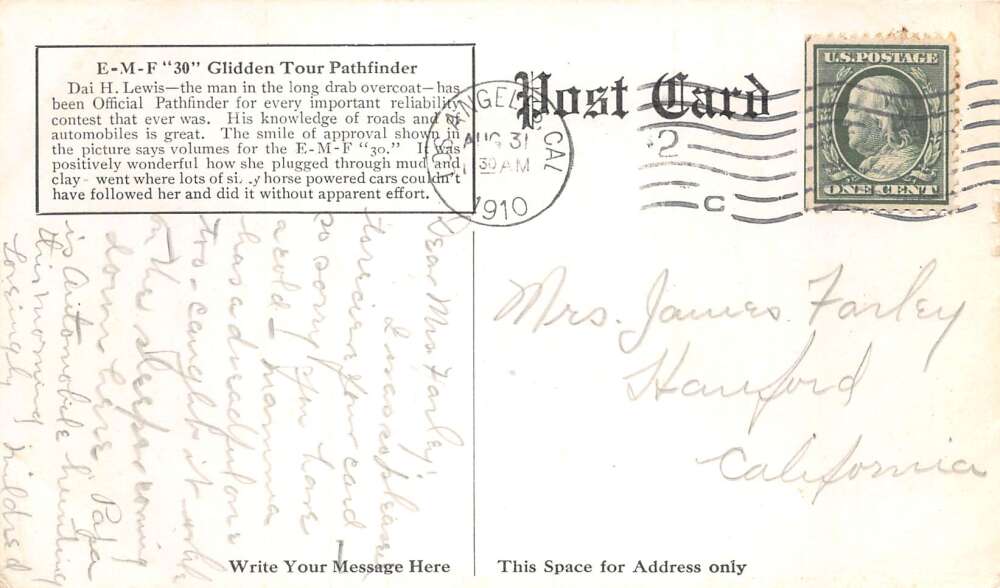 E-M-F "30" Glidden Tour Pathfinder
Dai H. Lewis—the man in the long drab overcoat—has
been Official Pathfinder for every important reliability
contest that ever was. His knowledge of roads and of
automobiles is great. The smile of approval shown in
the picture says volumes for the E-M-F "30." It was
positively wonderful how she plugged through mud and
clay - went where lots of si. .y horse powered cars couldn't
have followed her and did it without apparent effort.
Post Card
LOS ANGELES, CAL
AUG 31
30 AM
1910
2
C
U.S. POSTAGE
ONE CENT
Dear Mrs. Farley:
I was so pleased
to receive your card
so sorry you have
a cold - Mamma
has a dreadful one
too - caught it while
on the sleeper coming
down here Papa
is Automobile hunting
this morning
Lovingly Mildred
Mrs. James Farley
Hanford
California
Write Your Message Here
This Space for Address only